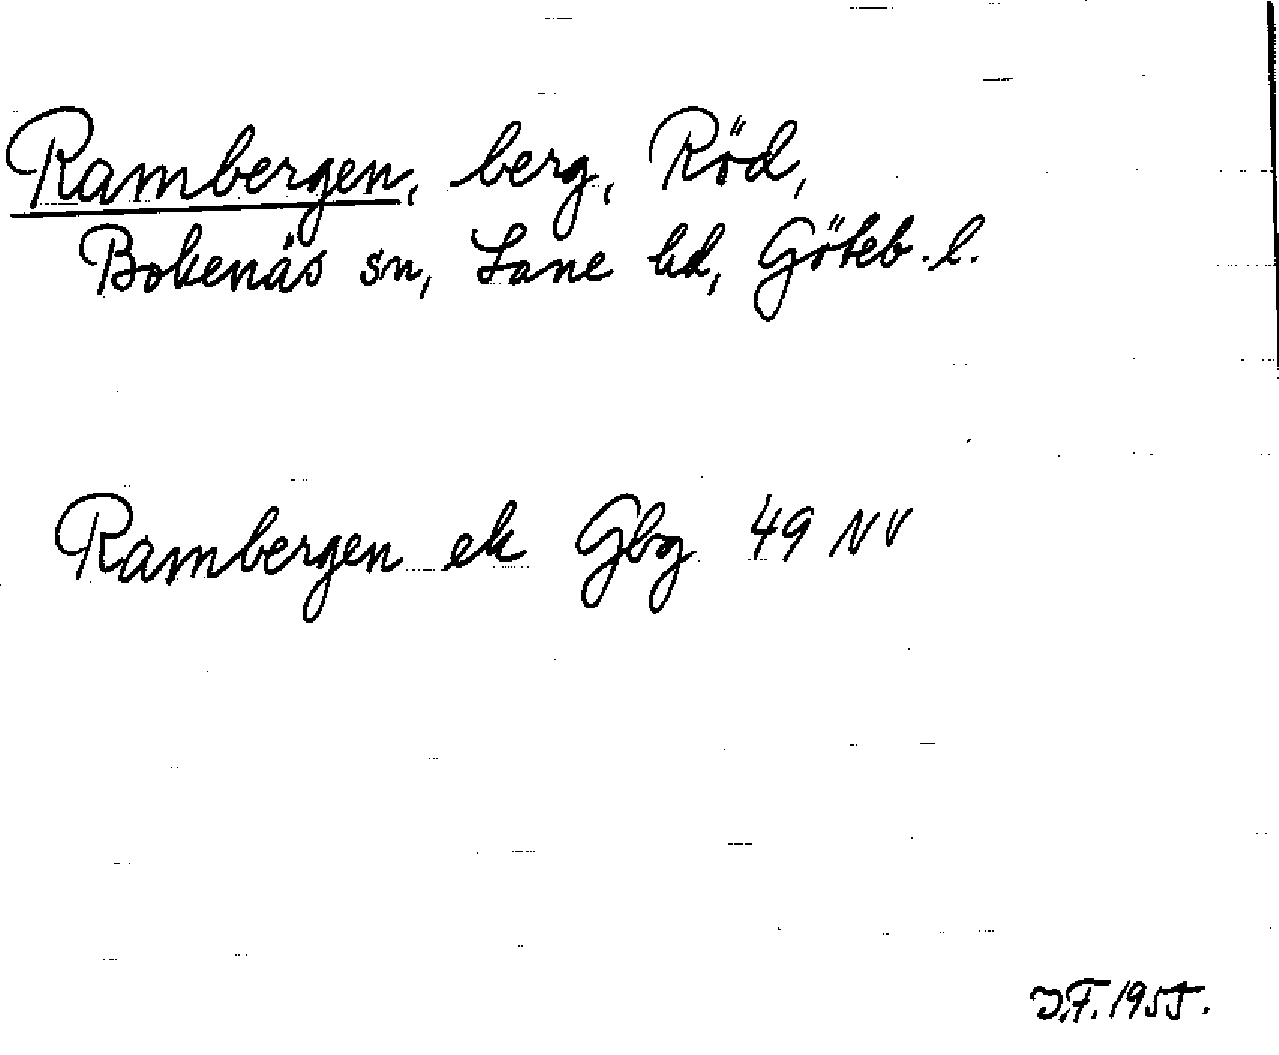 Rambergen, berg, Röd,
Bokenäs sn, Lane hd, Göteb. l.
Rambergen ek Gbg 49 NV
J.F. 1955.